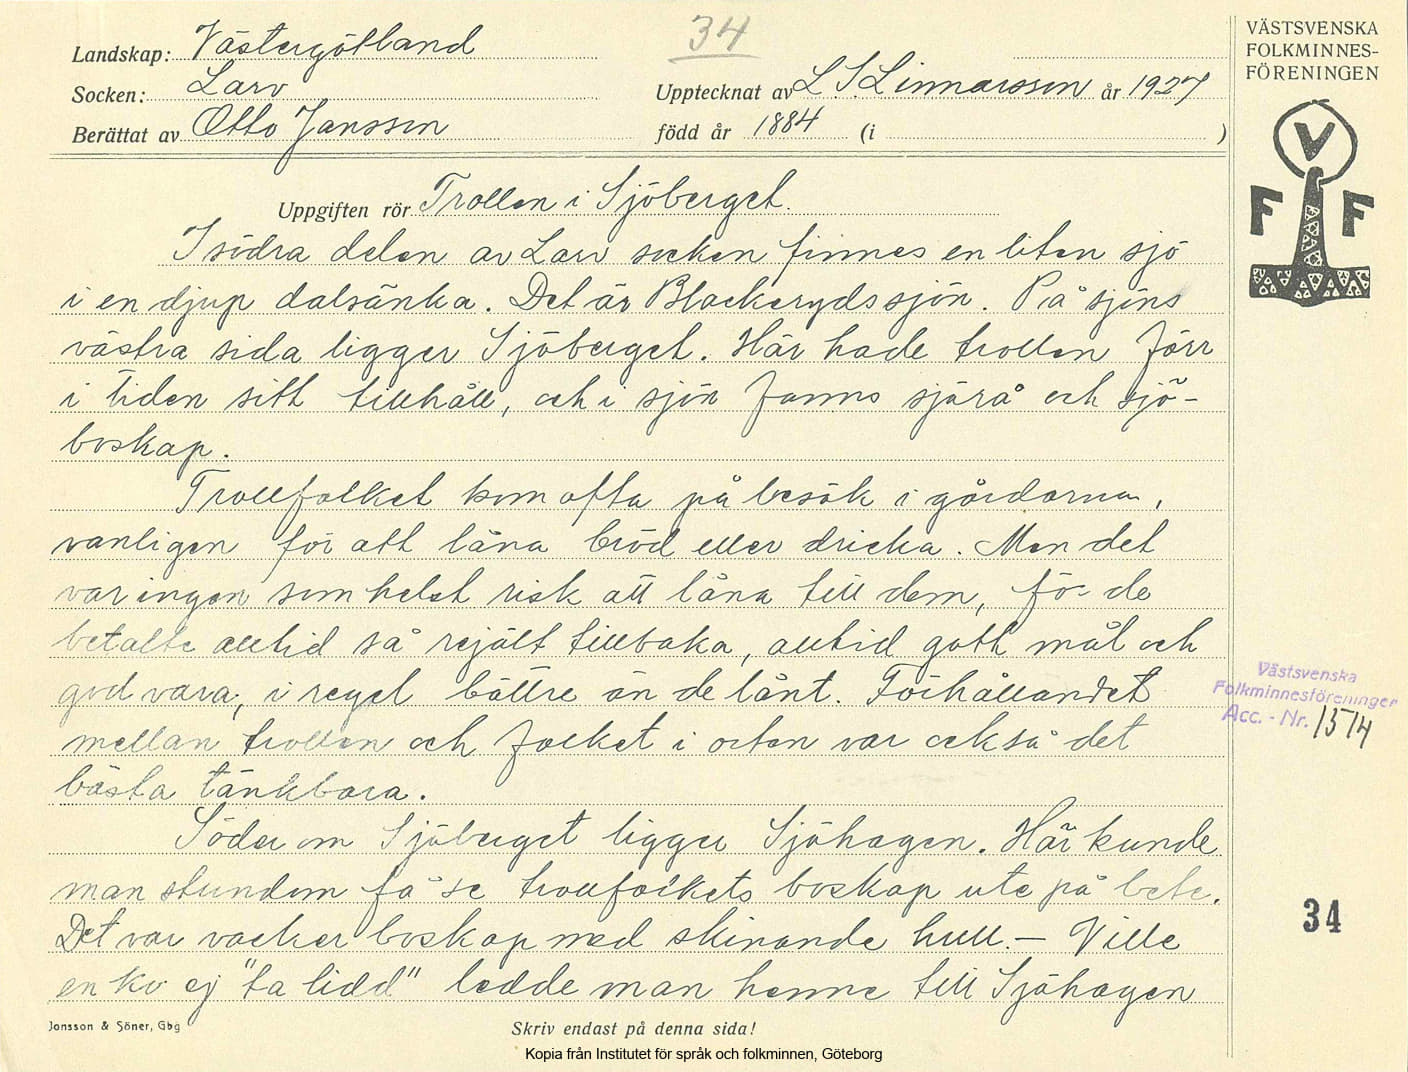 34
Landskap: Västergötland
Socken: Larv
Upptecknat av L. S. Linnarsson år 1927
Berättat av Otto Jansson
född år 1884 (i )
VÄSTSVENSKA
FOLKMINNES-
FÖRENINGEN
V
F F
Uppgiften rör Trollen i Sjöberget.
I södra delen av Larv socken finnes en liten sjö
i en djup dalsänka. Det är Blackerydssjön. På sjöns
västra sida ligger Sjöberget. Här hade trollen förr
i tiden sitt tillhåll, och i sjön fanns sjörå och sjö-
boskap.
Trollfolket kom ofta på besök i gårdarna,
vanligen för att låna bröd eller dricka. Men det
var ingen som helst risk att låna till dem, för de
betalte alltid så rejält tillbaka, alltid gott mål och
god vara, i regel bättre än de lånt. Förhållandet
mellan trollen och folket i orten var också det
bästa tänkbara.
Söder om Sjöberget ligger Sjöhagen. Här kunde
man stundom få se trollfolkets boskap ute på bete.
Det var vacker boskap med skinande hull. — Ville
en ko ej "ta lidd" ledde man henne till Sjöhagen
Västsvenska
Folkminnesföreningen
Acc. - Nr. 1574
34
Jonsson & Söner, Gbg
Skriv endast på denna sida!
Kopia från Institutet för språk och folkminnen, Göteborg